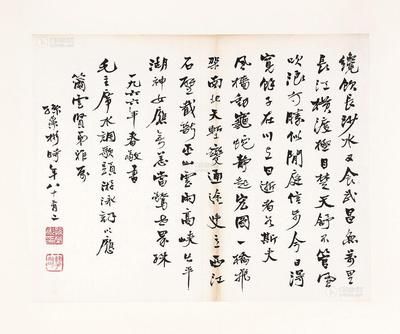 纔飲長沙水又食武昌魚萬里
長江橫渡極目楚天舒不管風
吹浪打勝似閒庭信步今日得
寬餘子在川上曰逝者如斯夫
風檣動龜蛇靜起宏圖一橋飛
架南北天塹變通途更立西江
石壁截斷巫山雲雨高峽出平
湖神女應無恙當驚世界殊
一九六六年春敬書
毛主席水調歌頭游泳詞以應
雲賢弟雅屬
孫時年八十有二